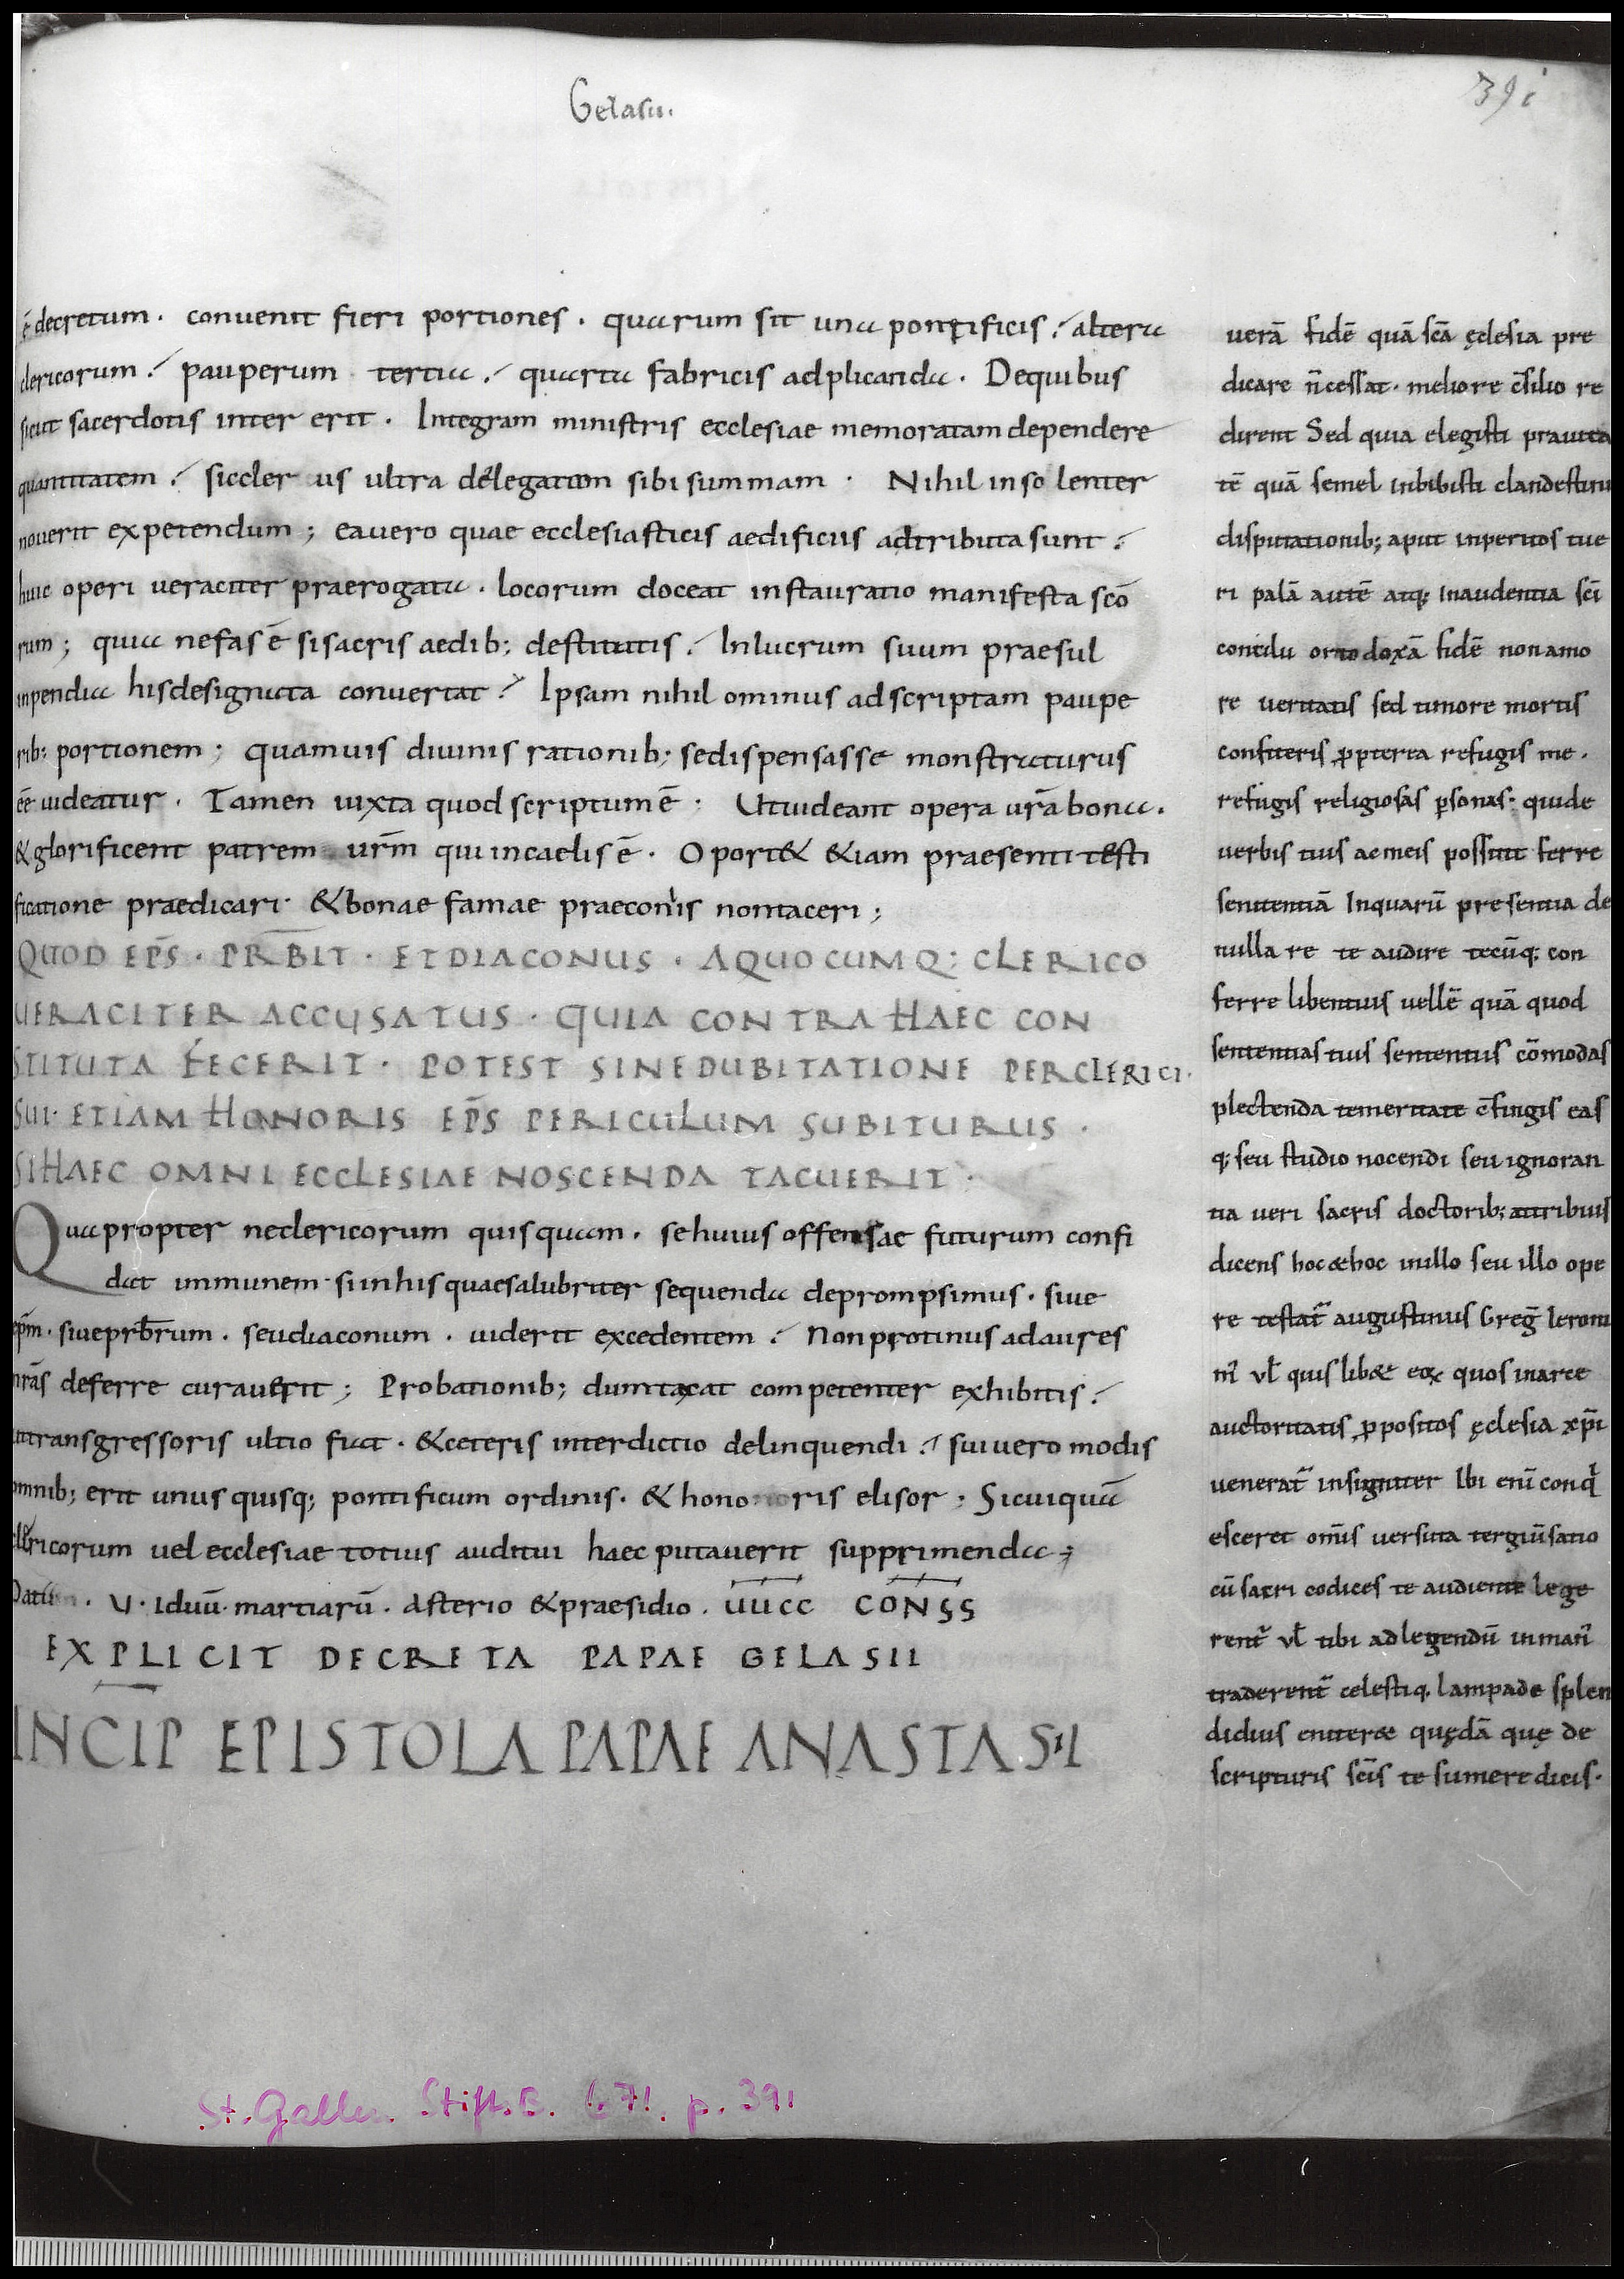 Gelasii.
391
ē decretum. convenit fieri portiones. quarum sit una pontificis. altera
clericorum. pauperum tertia. quarta fabricis adplicanda. Dequibus
sicut sacerdotis inter erit. Integram ministris ecclesiae memoratam dependere
quantitatem. siccler us ultra delegatam sibi summam. Nihil inso lenter
noverit expetendum; eavero quae ecclesiasticis aedificiis adtributa sunt.
huic operi veraciter praerogata. locorum doceat instauratio manifesta scō
rum; quia nefas ē sisacris aedib; destitutis. Inlucrum suum praesul
inpendia hisdesignata convertat. Ipsam nihil ominus adscriptam paupe
rib; portionem; quamvis divinis rationib; sedispensasse monstraturus
eē videatur. Tamen iuxta quod scriptum ē. Utvideant opera vrā bona.
& glorificent patrem vrm̄ qui incaelis ē. Oport& &iam praesenti testi
ficatione praedicari. & bonae famae praeconiis nontaceri;
QUOD EPS̄. PRB̄IT. ET DIACONUS. AQUOCUMQ; CLERICO
VERACITER ACCUSATUS. QUIA CONTRA HAEC CON
STITUTA FECERIT. POTEST SINEDUBITATIONE PERCLERICI.
SUI. ETIAM HONORIS EPS̄ PERICULUM SUBITURUS.
SIHAEC OMNI ECCLESIAE NOSCENDA TACUERIT.
Quapropter neclericorum quisquam. sehuius offensae futurum confi
dat inmunem. siinhis quaesalubriter sequenda deprompsimus. sive
epm̄. siveprb̄rum. seudiaconum. viderit excedentem. Nonprotinus adaures
nrās deferre curaverit; Probationib; dumtaxat competenter exhibitis.
uttransgressoris ultio fiat. &ceteris interdictio delinquendi. suivero modis
omnib; erit unus quisq; pontificum ordinis. & hono ris elisor; Sicuiquā
clericorum vel ecclesiae totius auditui haec putaverit supprimenda;
Datū. V. iduū. martiarū. asterio & praesidio. UUCC CONSS
EXPLICIT DECRETA PAPAE GELASII
INCIP EPISTOLA PAPAE ANASTASII
verā fidē quā scā ęclesia pre
dicare n̄ cessat. meliore c̄silio re
dirent Sed quia elegisti pravita
tē quā semel inbibisti clandestinis
disputationib; aput inperitos tue
ri palā autē atq; inaudentia sci
concilii ortodoxā fidē non amo
re veritatis sed timore mortis
confiteris ꝓpterea refugis me.
refugis religiosas psonas. quide
verbis tuis acmeis possint ferre
sententiā Inquarū presentia de
nulla re te audire tecūq; con
ferre libentius vellē quā quod
sententias tuis sententiis cōmodas
plectenda temeritate c̄fingis eas
q; seu studio nocendi seu ignoran
tia veri sacris doctorib; attribuis
dicens hoc & hoc inillo seu illo ope
re testat̄ augustinus Greḡ Ieroni
m̄ vl̄ quislib& eox quos inarce
auctoritatis ꝓpositos ęclesia xp̄i
venerat̄ insigniter Ibi enī conq̄
esceret om̄is versuta tergiv̄satio
cū sacri codices te audiente lege
rent̄ vl̄ tibi adlegendū inman̄
traderent̄ celestiq; lampade splen
didius eniter& quędā quę de
scripturis scīs te sumere dicis.
St. Gallen. Stift.B. 671. p. 391